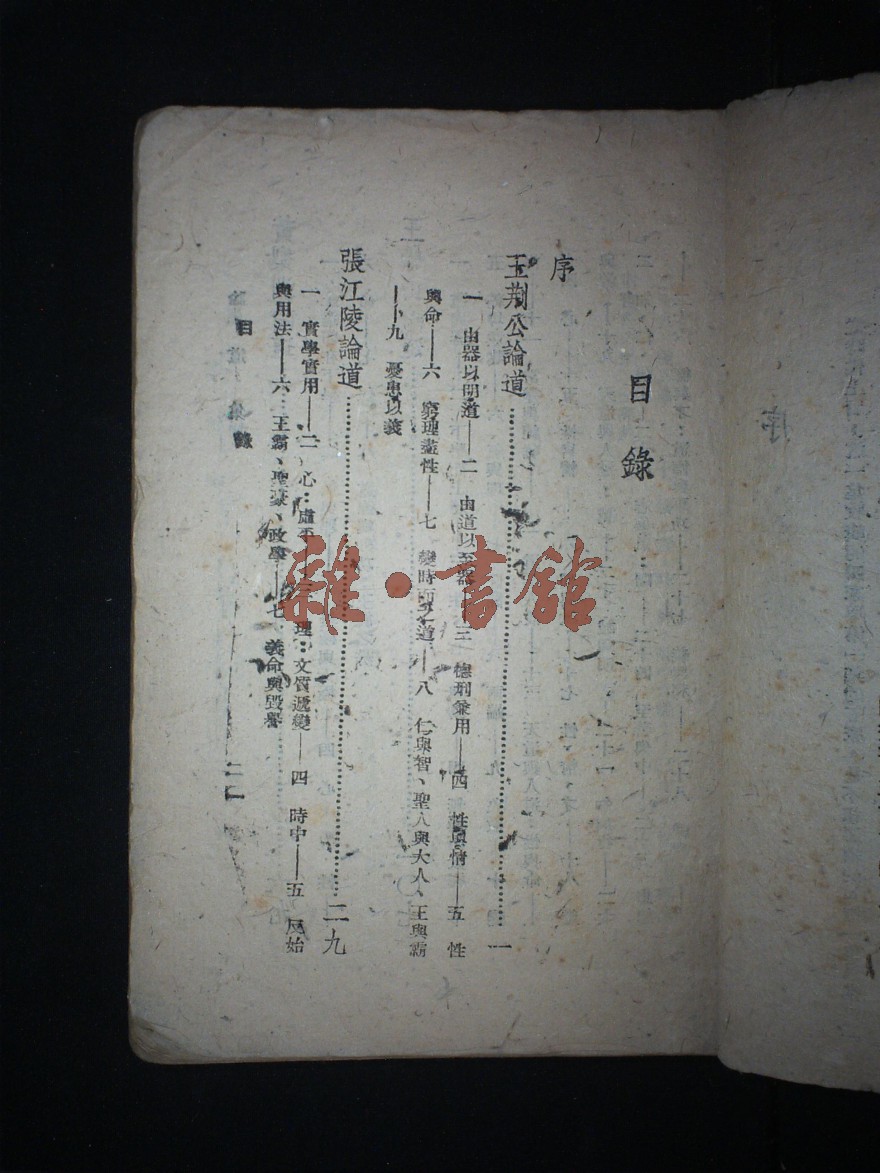 目錄
序
王荆公論道……一
一 由器以明道——二 由道以至器——三 德刑兼用——四 性與情——五 性
與命——六 窮理盡性——七 變時而之道——八 仁與智、聖人與大人、王與霸
——九 憂患以義
張江陵論道……二九
一 實學實用——二 心:虛 理:文質遞變——四 時中——五 反始
與用法——六 王霸、聖豪、政學——七 義命與毀譽
目錄
雜·書館
序